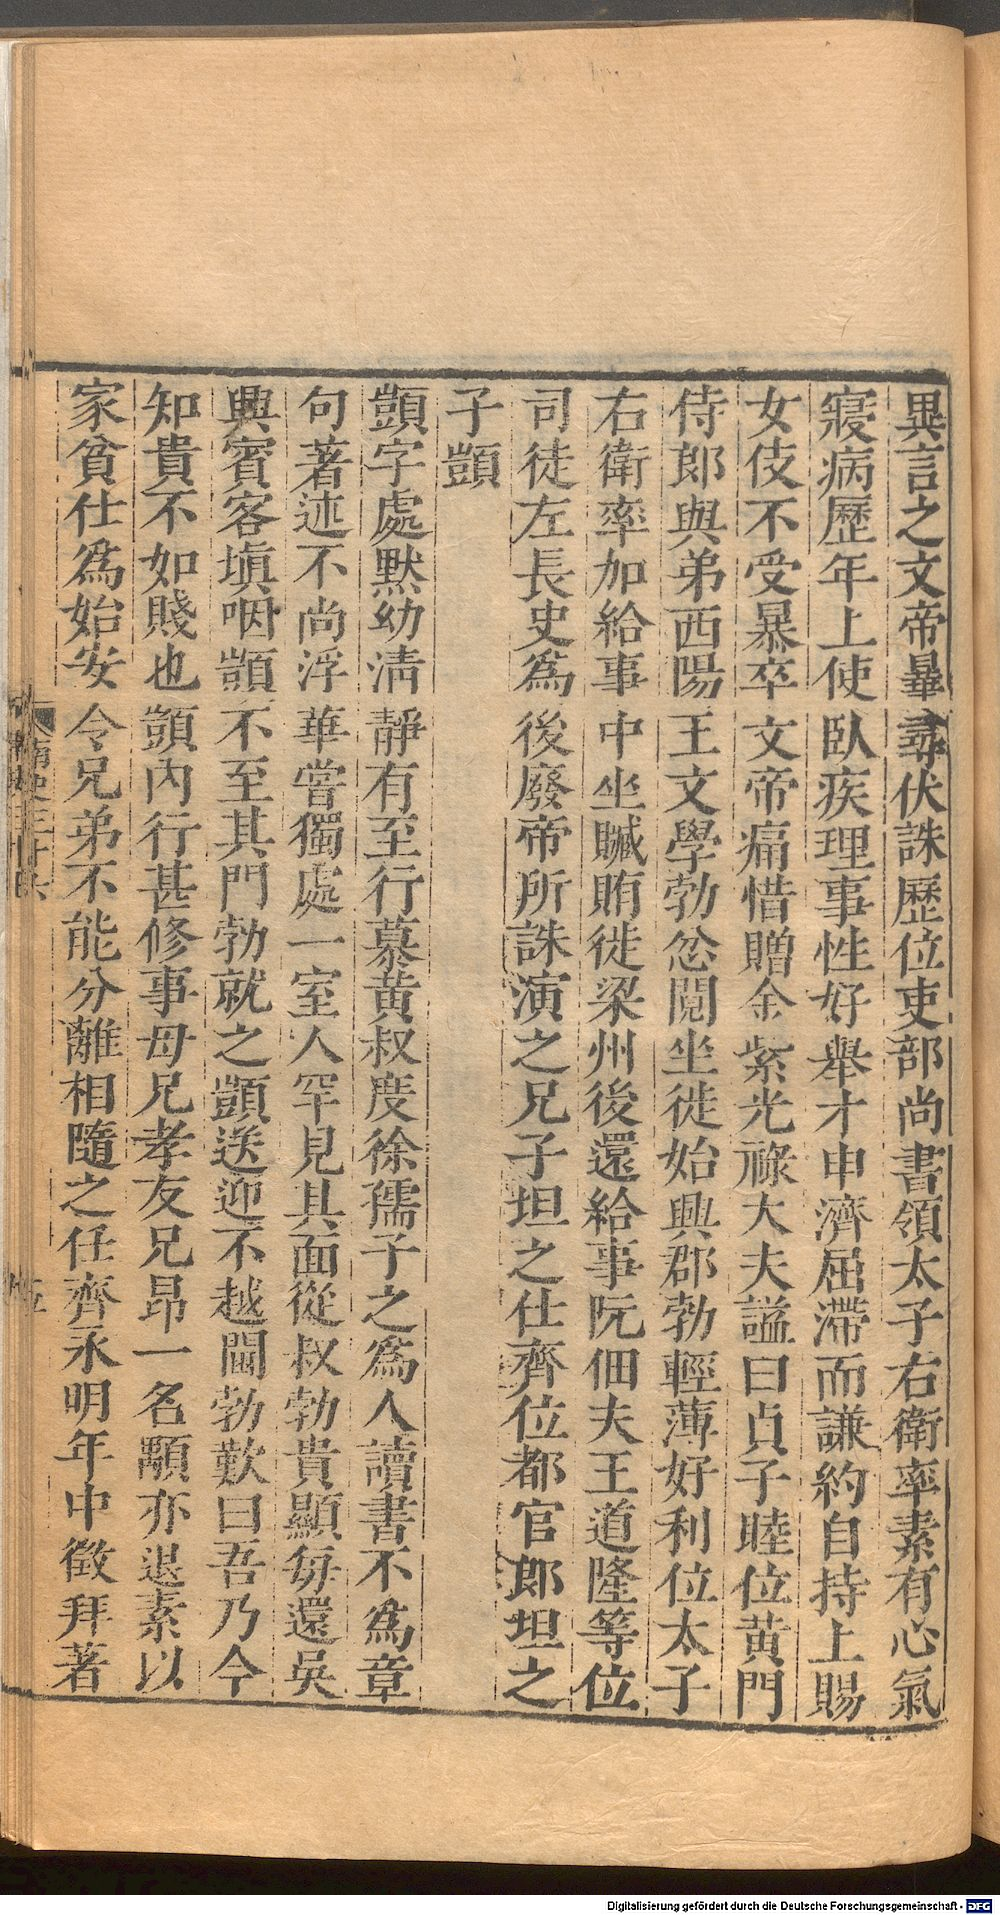 異言之文帝畢尋伏誅歷位吏部尚書領太子右衛率素有心氣
寢病歷年上使臥疾理事性好舉才申濟屈滯而謙約自持上賜
女伎不受暴卒文帝痛惜贈金紫光祿大夫謚曰貞子睦位黃門
侍郎與弟西陽王文學勃忿鬩坐徙始興郡勃輕薄好利位太子
右衛率加給事中坐贓賄徙梁州後還給事阮佃夫王道隆等位
司徒左長史爲後廢帝所誅演之兄子坦之仕齊位都官郎坦之
子顗
顗字處默幼淸靜有至行慕黃叔度徐孺子之爲人讀書不爲章
句著述不尚浮華嘗獨處一室人罕見其面從叔勃貴顯每還吳
興賓客塡咽顗不至其門勃就之顗送迎不越閫勃歎曰吾乃今
知貴不如賤也顗內行甚修事母兄孝友兄昂一名顒亦退素以
家貧仕爲始安令兄弟不能分離相隨之任齊永明年中徵拜著
南史三十六
Digitalisierung gefördert durch die Deutsche Forschungsgemeinschaft - DFG